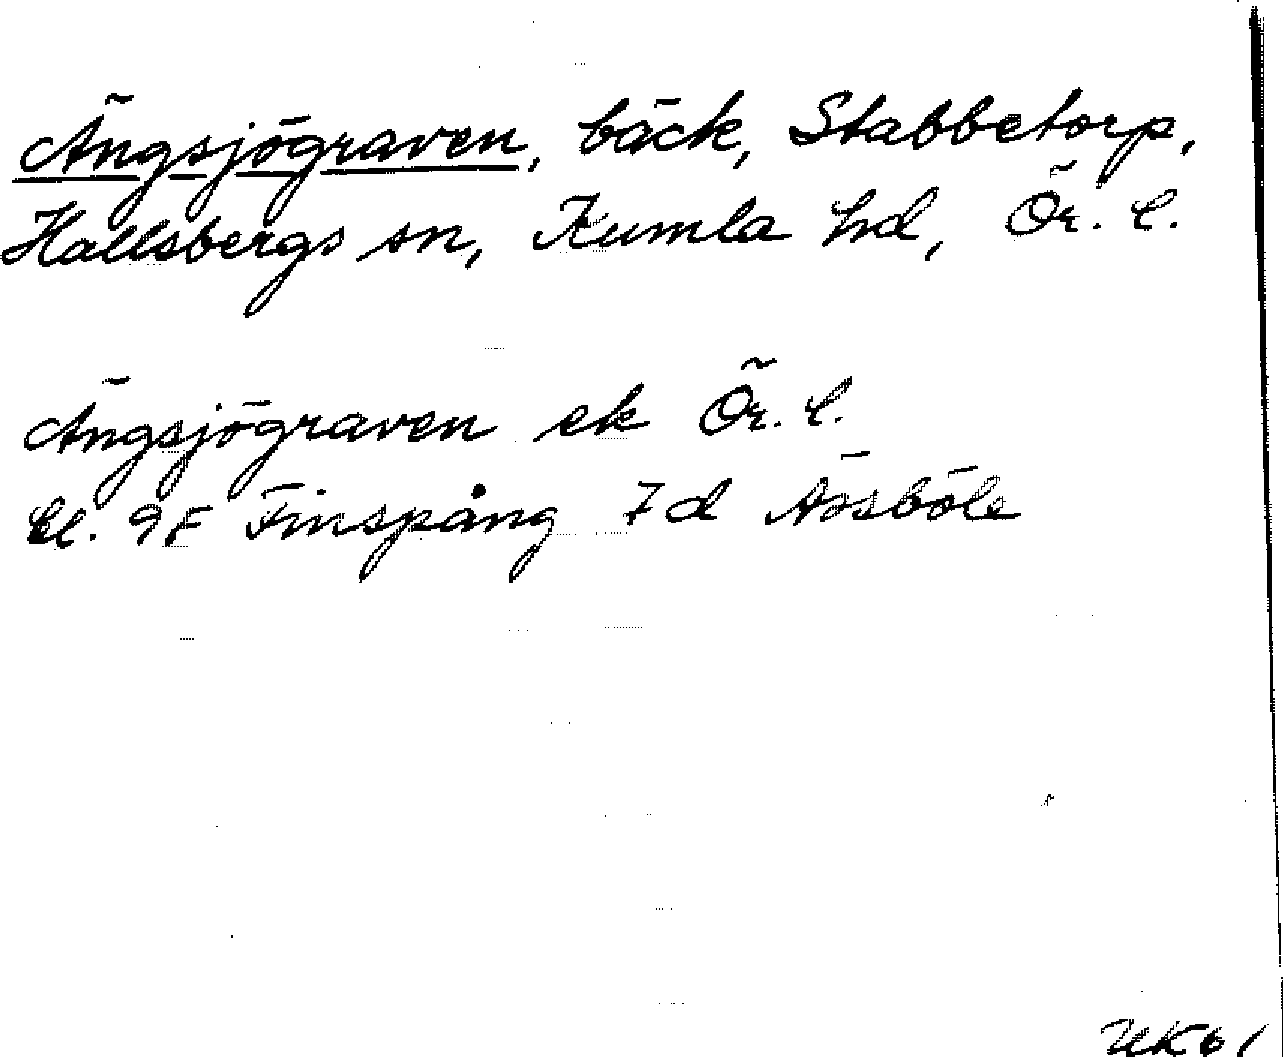 Ängsjögraven, bäck, Stabbetorp,
Hallsbergs sn, Kumla hd, Ör. l.
Ängsjögraven ek Ör. l.
bl. 9F Finspång 7d Åösböle
UK61